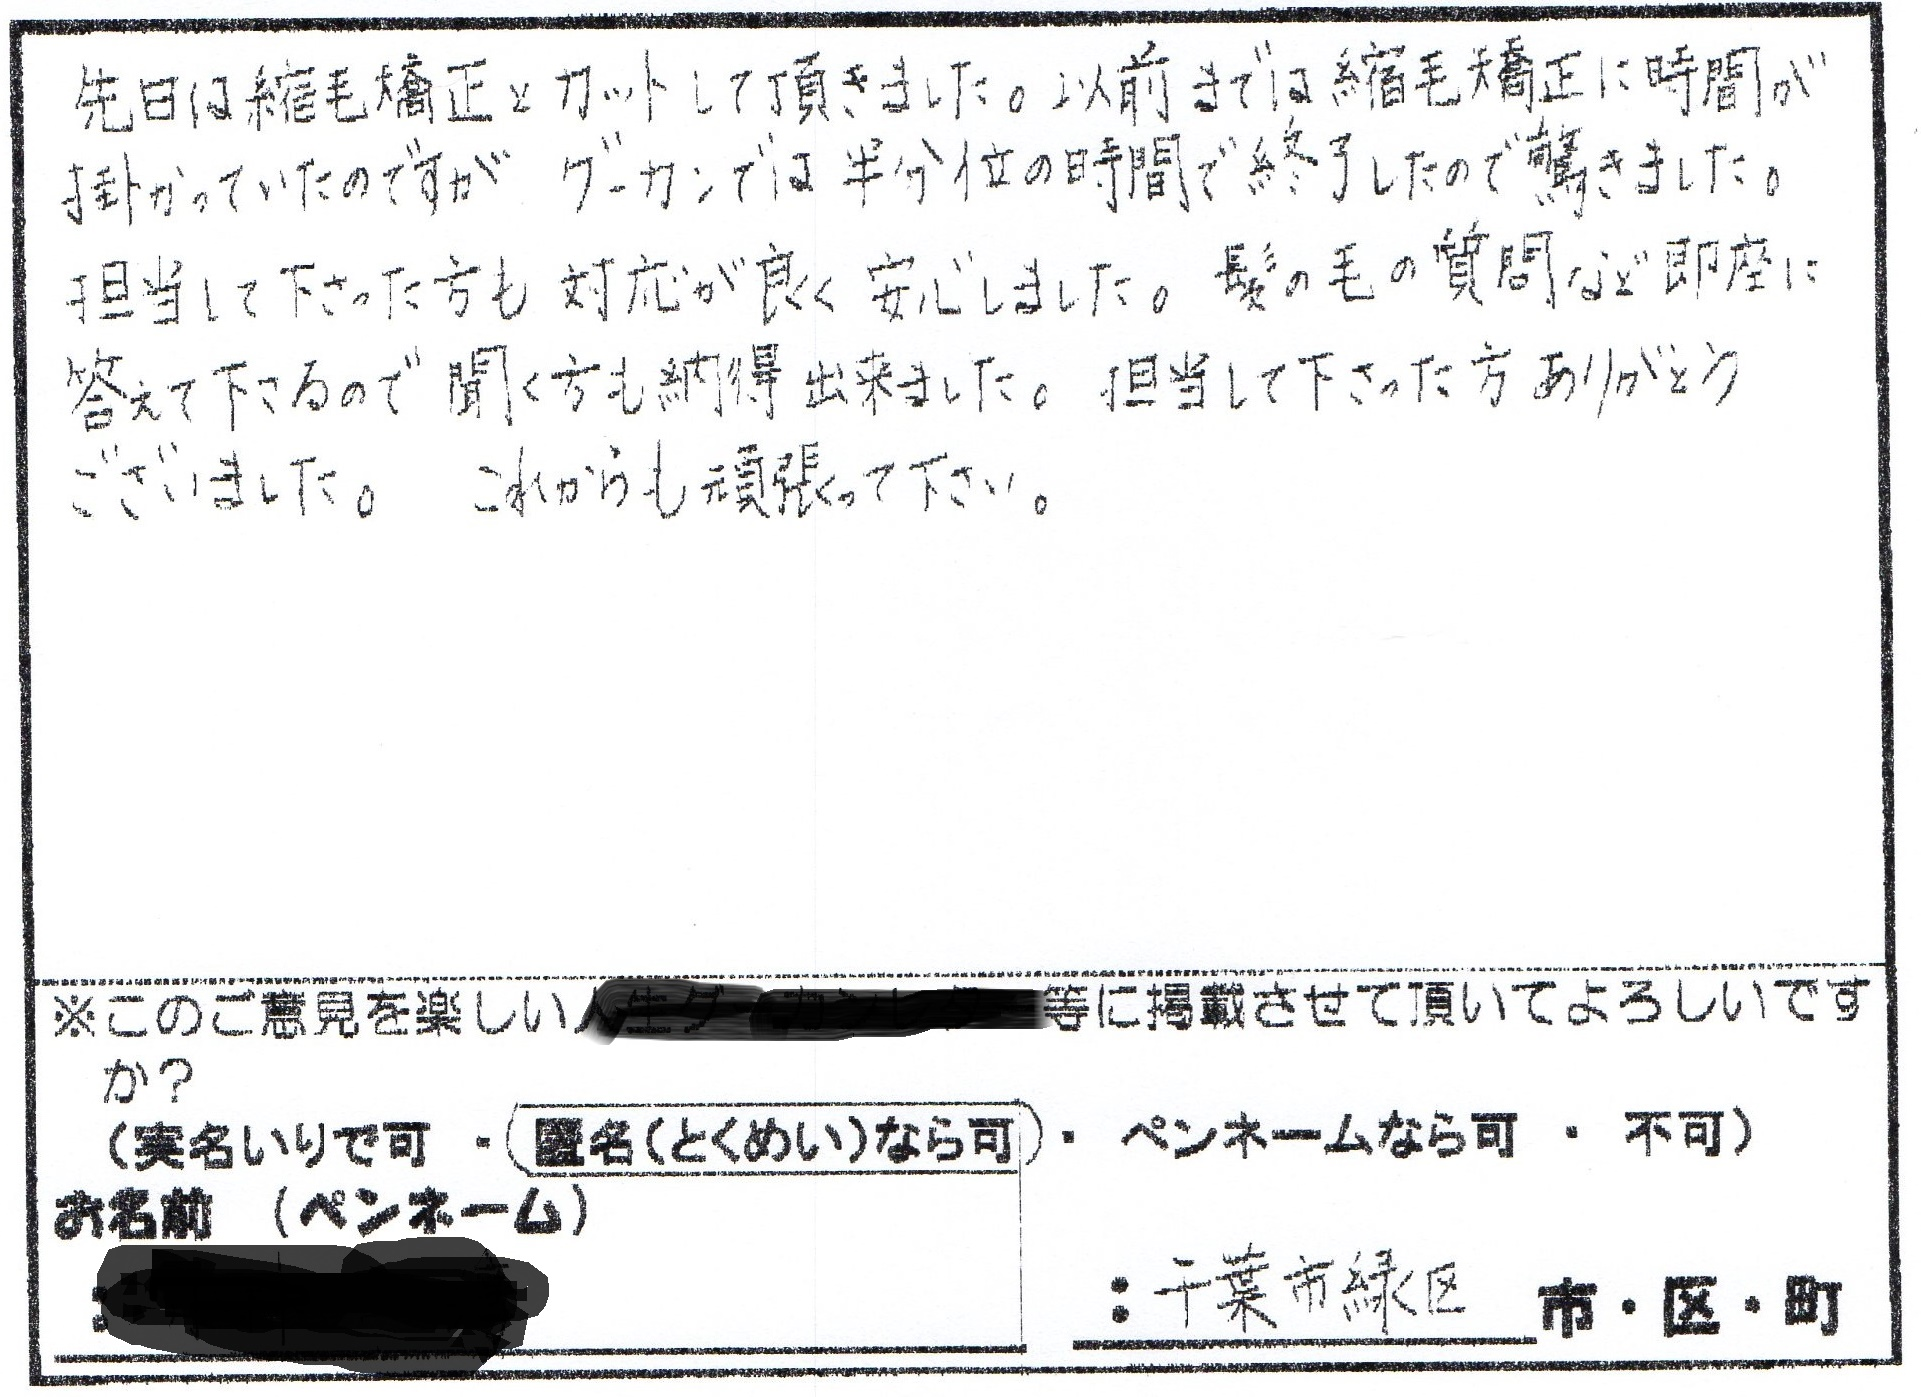 先日は縮毛矯正とカットして頂きました。以前までは縮毛矯正に時間が
掛かっていたのですが グーカンでは半分位の時間で終了したので驚きました。
担当して下さった方も対応が良く安心しました。髪の毛の質問など即座に
答えて下さるので聞く方も納得出来ました。担当して下さった方ありがとう
ございました。 これからも頑張って下さい。
※このご意見を楽しい 等に掲載させて頂いてよろしいです
か?
(実名いりで可 ・ 匿名(とくめい)なら可 ・ ペンネームなら可 ・ 不可)
お名前 (ペンネーム)
: 千葉市緑区 市・区・町